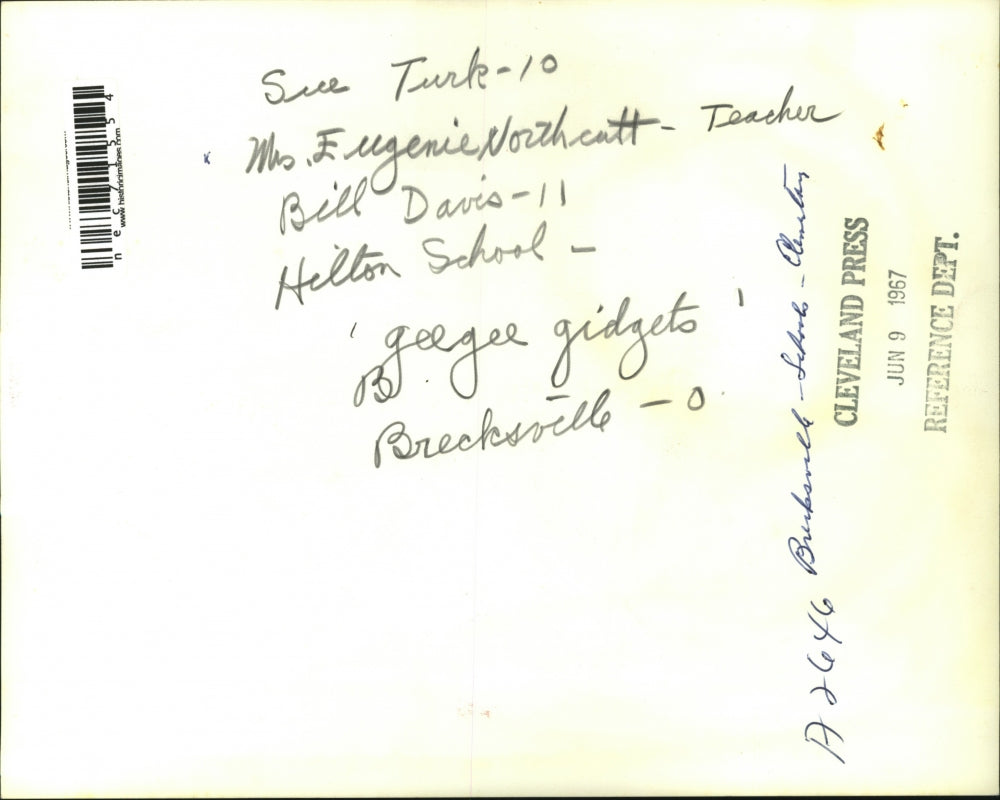 Sue Turk-10
Mrs. Eugenie Northcutt - Teacher
Bill Davis-11
Hilton School -
'geegee gidgets'
B
Brecksville - O
A 2646 Brecksville - Schools - Elementary
CLEVELAND PRESS
JUN 9 1967
REFERENCE DEPT.
nec71554
www.historicimages.com